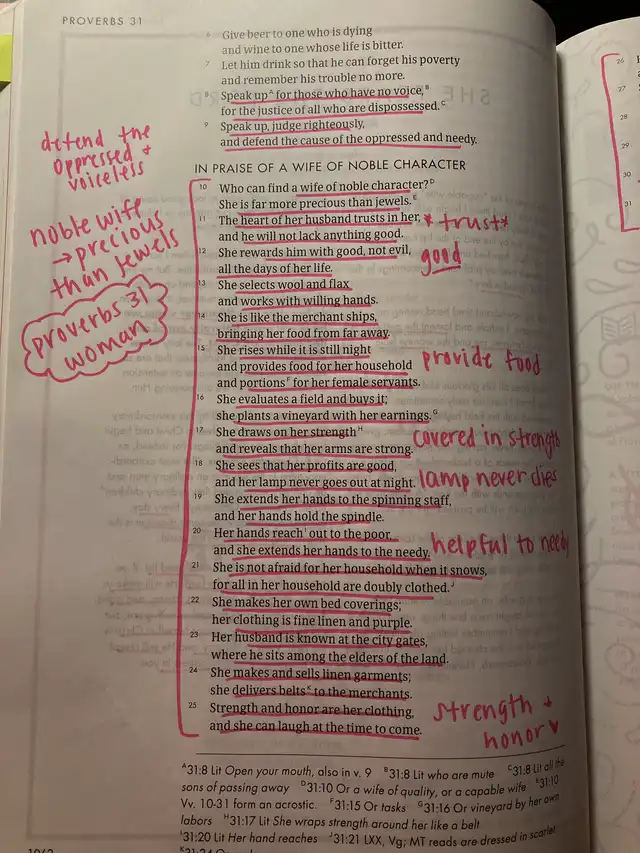 PROVERBS 31
6 Give beer to one who is dying
and wine to one whose life is bitter.
7 Let him drink so that he can forget his poverty
and remember his trouble no more.
8 Speak up^A for those who have no voice,^B
for the justice of all who are dispossessed.^C
9 Speak up, judge righteously,
and defend the cause of the oppressed and needy.
defend the
oppressed +
voiceless
IN PRAISE OF A WIFE OF NOBLE CHARACTER
10 Who can find a wife of noble character?^D
She is far more precious than jewels.^E
11 The heart of her husband trusts in her, *trust*
and he will not lack anything good.
12 She rewards him with good, not evil, good
all the days of her life.
noble wife
→ precious
than jewels
13 She selects wool and flax
and works with willing hands.
14 She is like the merchant ships,
bringing her food from far away.
proverbs 31
woman
15 She rises while it is still night
and provides food for her household provide food
and portions^F for her female servants.
16 She evaluates a field and buys it;
she plants a vineyard with her earnings.^G
17 She draws on her strength^H
and reveals that her arms are strong. covered in strength
18 She sees that her profits are good,
and her lamp never goes out at night. lamp never dies
19 She extends her hands to the spinning staff,
and her hands hold the spindle.
20 Her hands reach^I out to the poor,
and she extends her hands to the needy. helpful to needy
21 She is not afraid for her household when it snows,
for all in her household are doubly clothed.^J
22 She makes her own bed coverings;
her clothing is fine linen and purple.
23 Her husband is known at the city gates,
where he sits among the elders of the land.
24 She makes and sells linen garments;
she delivers belts^K to the merchants.
25 Strength and honor are her clothing, strength +
and she can laugh at the time to come. honor
^A31:8 Lit Open your mouth, also in v. 9 ^B31:8 Lit who are mute ^C31:8 Lit all the
sons of passing away ^D31:10 Or a wife of quality, or a capable wife ^E31:10
Vv. 10-31 form an acrostic. ^F31:15 Or tasks ^G31:16 Or vineyard by her own
labors ^H31:17 Lit She wraps strength around her like a belt
^I31:20 Lit Her hand reaches ^J31:21 LXX, Vg; MT reads are dressed in scarlet
26
27
28
29
30
31